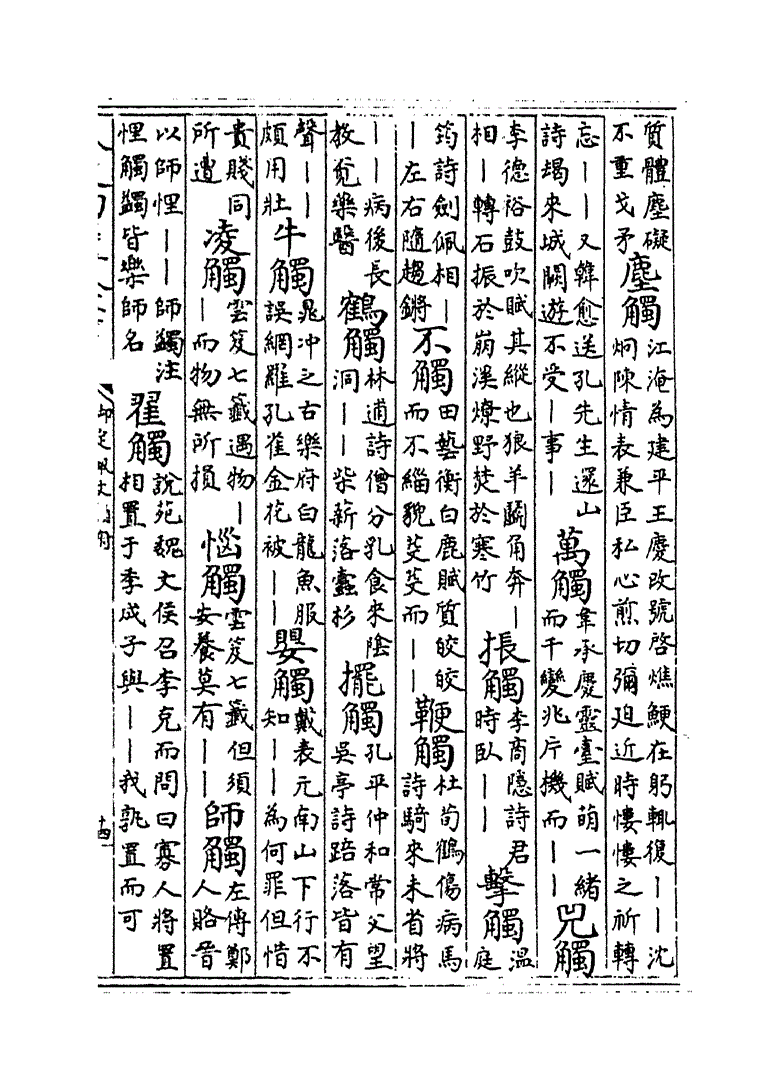 質體塵礙不重戈矛 塵觸 江淹為建平王慶改號啓燋鯁在躬輒復——沈炯陳情表兼臣私心煎切彌廹近時悽悽之祈轉
忘——又韓愈送孔先生還山詩朅來城闕遊不受—事— 萬觸 韋承慶靈臺賦萌一緒而千變兆片機而—— 兕觸
李德裕鼓吹賦其縱也狼羊鬭角奔—相—轉石振於崩溪燎野焚於寒竹 掁觸 李商隱詩君時臥—— 擊觸 溫庭
筠詩劍佩相——左右隨趨鏘 不觸 田藝衡白鹿賦質皎皎而不緇貌芰芰而—— 鞭觸 杜荀鶴傷病馬詩騎來未省將
——病後長教覓樂醫 鶴觸 林逋詩僧分乳食來陰洞——柴薪落蠧杉 擺觸 孔平仲和常父望吳亭詩踣落皆有
聲——頗用壯 牛觸 晁冲之古樂府白龍魚服誤網羅孔雀金花被—— 嬰觸 戴表元南山下行不知——為何罪但惜
貴賤同所遭 凌觸 雲笈七籤遇物——而物無所損 惱觸 雲笈七籤但須安養莫有—— 師觸 左傳鄭人賂晉
以師悝——師蠲注悝觸蠲皆樂師名 翟觸 說苑魏文侯召李克而問曰寡人將置相置于李成子與——我孰置而可
御定佩文韻府
十四